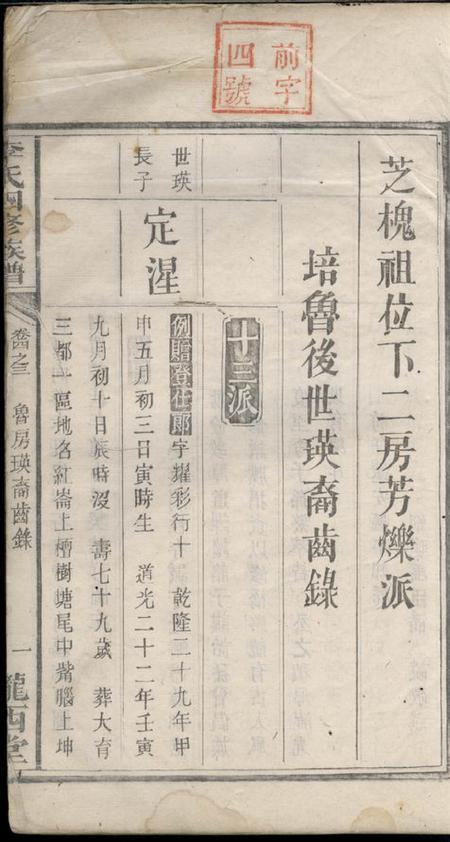 前字
四號
芝槐祖位下二房芳爍派
培魯後世瑛裔齒錄
十三派
世瑛
長子
定湼
例贈登仕郎字耀彩行十 乾隆二十九年甲
申五月初三日寅時生 道光二十二年壬寅
九月初十日辰時沒 壽七十九歲 葬大育
三都一區地名紅崙上檀樹塘尾中嘴腦上坤
李氏四修族譜
卷之三 魯房瑛裔齒錄 一
隴西堂